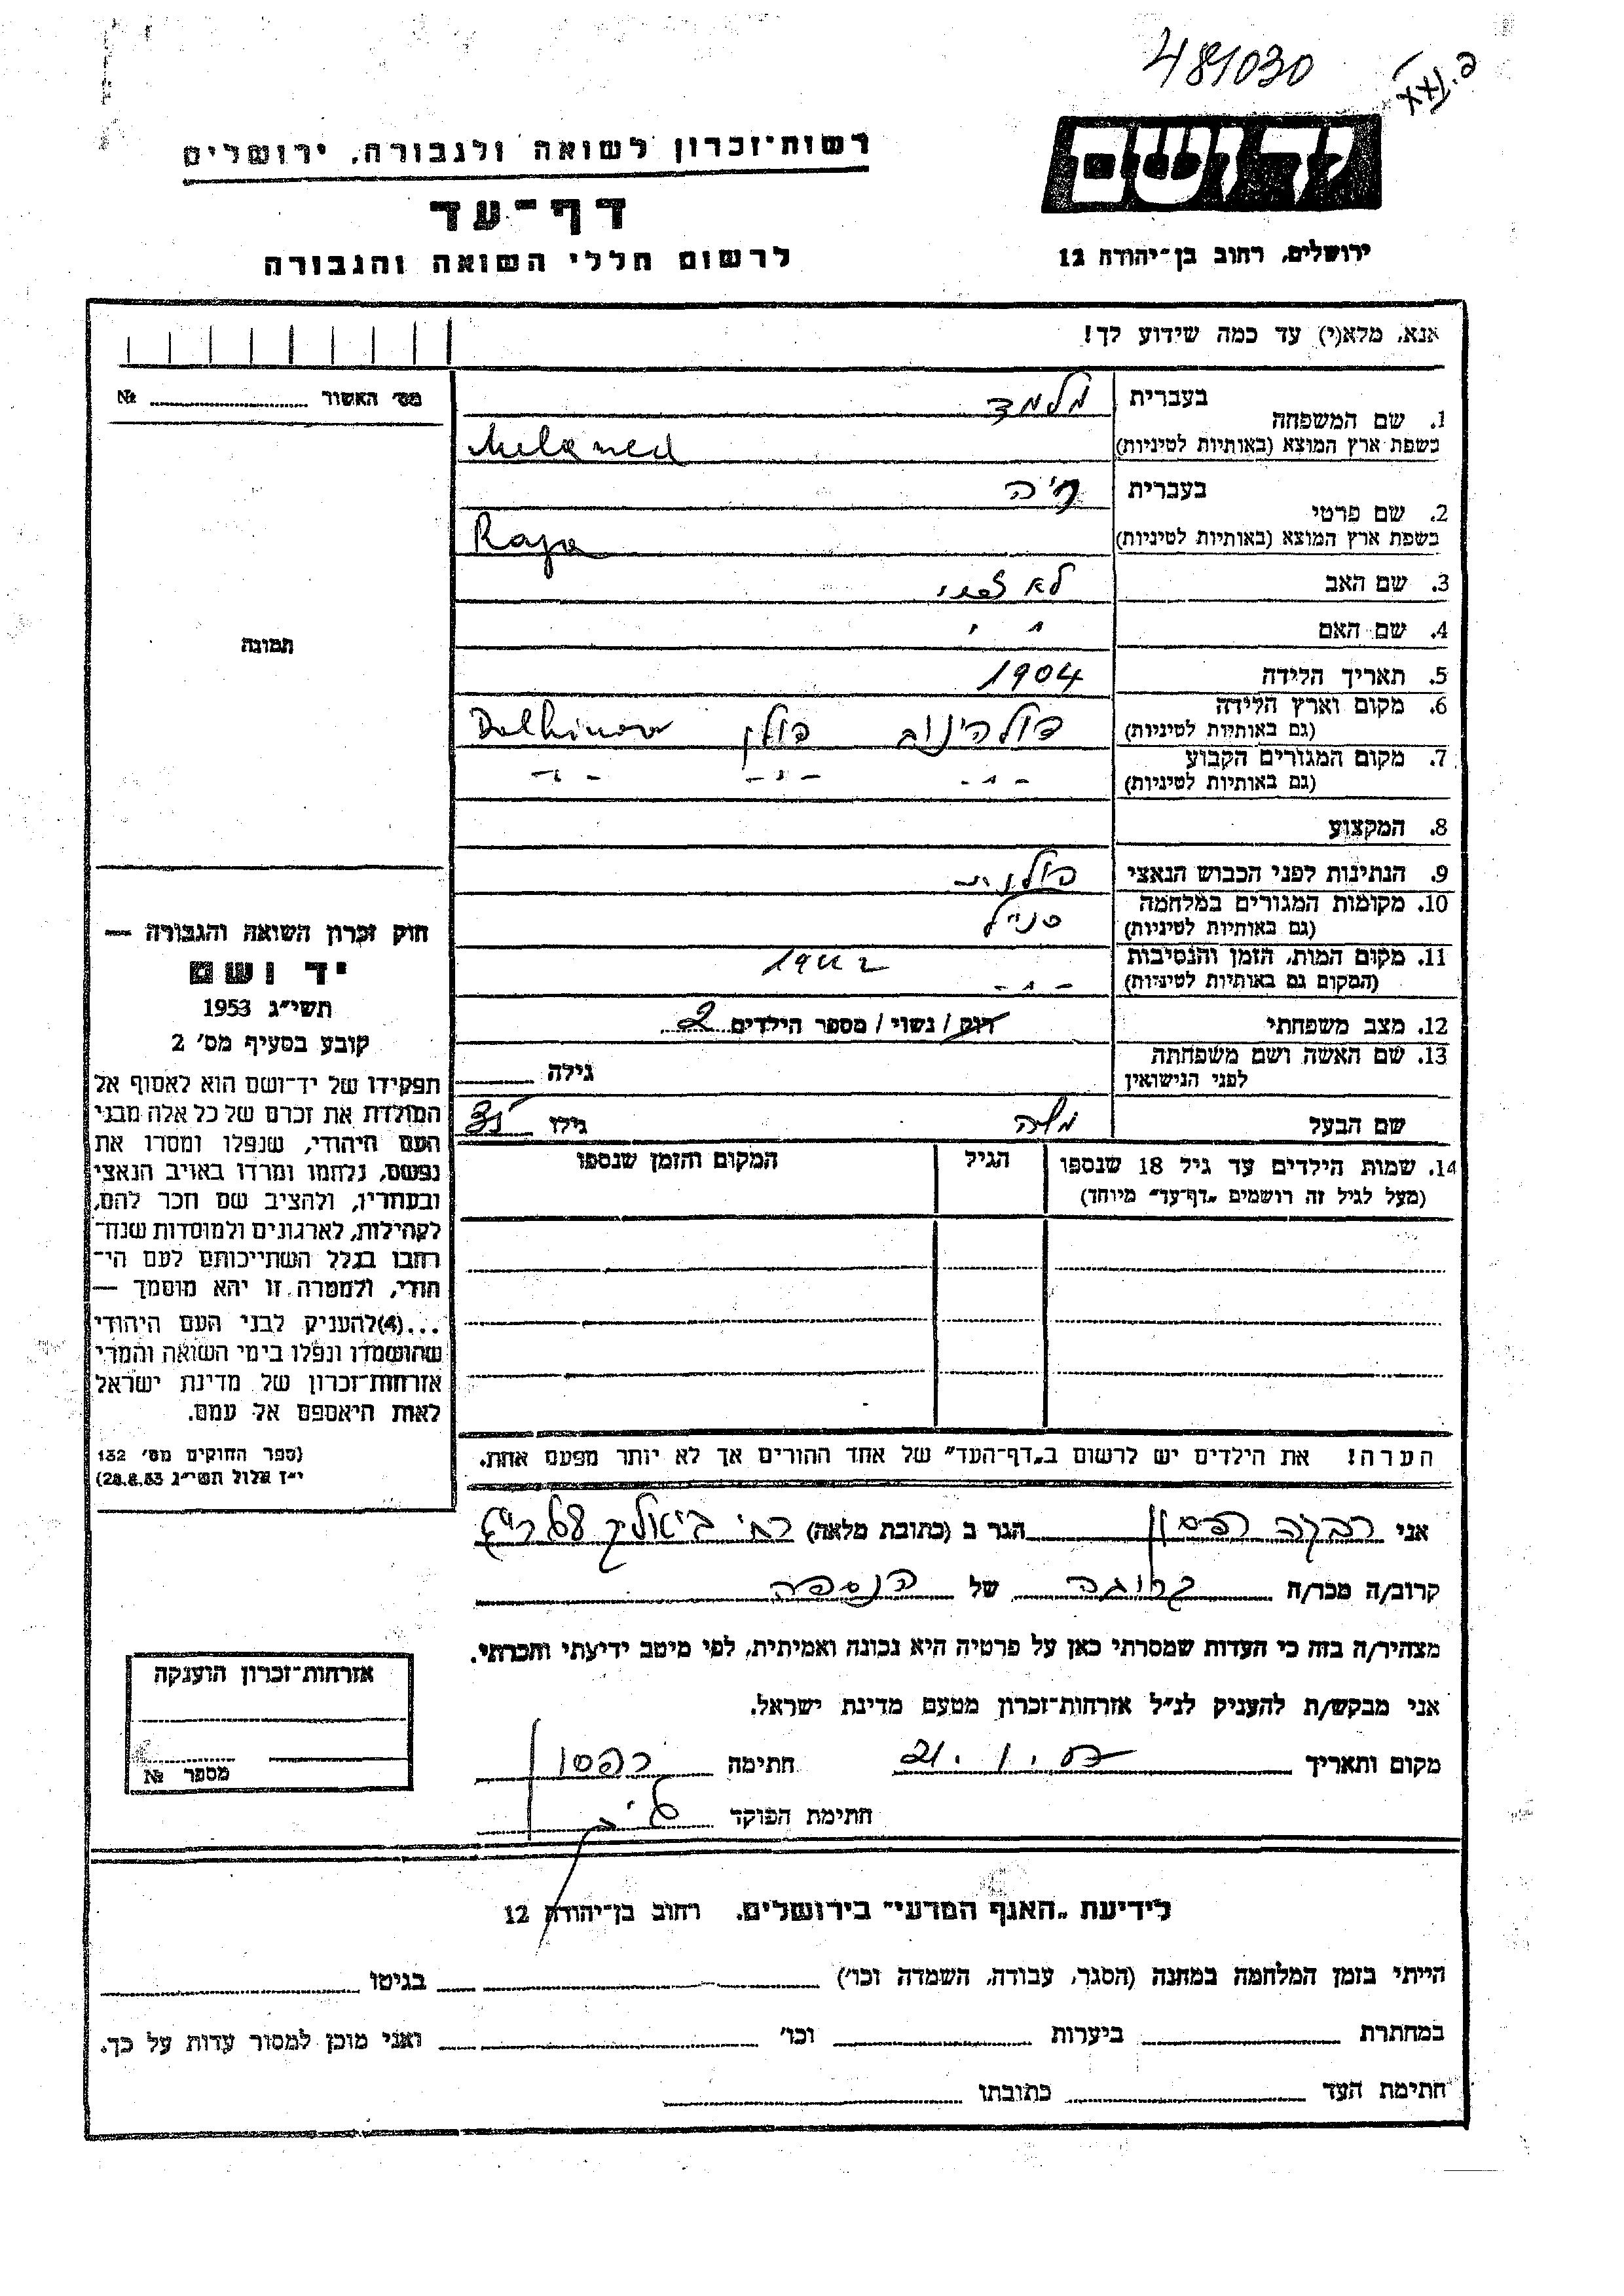 481030
יד ושם
ירושלים, רחוב בן־יהודה 12
רשות־זכרון לשואה ולגבורה, ירושלים
דף־עד
לרשום חללי השואה והגבורה
אנא, מלא(י) עד כמה שידוע לך!
מס' האשור № 
תמונה
1. שם המשפחה
בעברית מלמד
בשפת ארץ המוצא (באותיות לטיניות) Melamed
2. שם פרטי
בעברית חיה
בשפת ארץ המוצא (באותיות לטיניות) Raja
3. שם האב לא ידוע
4. שם האם
5. תאריך הלידה 1904
6. מקום וארץ הלידה דולהינוב פולין Dolhinow
(גם באותיות לטיניות)
7. מקום המגורים הקבוע - " - - " - - " -
(גם באותיות לטיניות)
8. המקצוע
9. הנתינות לפני הכבוש הנאצי פולנית
10. מקומות המגורים במלחמה כנ"ל
(גם באותיות לטיניות)
11. מקום המות, הזמן והנסיבות 1942
(המקום גם באותיות לטיניות) - " -
12. מצב משפחתי רווק / נשוי / מספר הילדים 2
13. שם האשה ושם משפחתה
לפני הנישואין
גילה
שם הבעל משה גילו
14. שמות הילדים עד גיל 18 שנספו הגיל המקום והזמן שנספו
(מעל לגיל זה רושמים „דף־עד" מיוחד)
הערה! את הילדים יש לרשום ב„דף־העד" של אחד ההורים אך לא יותר מפעם אחת.
חוק זכרון השואה והגבורה —
יד ושם
תשי"ג 1953
קובע בסעיף מס' 2
תפקידו של יד־ושם הוא לאסוף אל
המולדת את זכרם של כל אלה מבני
העם היהודי, שנפלו ומסרו את
נפשם, נלחמו ומרדו באויב הנאצי
ובעוזריו, ולהציב שם וזכר להם,
לקהילות, לארגונים ולמוסדות שנח־
רבו בגלל השתייכותם לעם הי־
הודי, ולמטרה זו יהא מוסמך —
...(4)להעניק לבני העם היהודי
שהושמדו ונפלו בימי השואה והמרי
אזרחות־זכרון של מדינת ישראל
לאות היאספם אל עמם.
(ספר החוקים מס' 132
י"ז אלול תשי"ג 28.8.53)
אני רבקה רפסון הגר ב (כתובת מלאה) רח' ביאליק
קרוב/ה מכר/ה קרובה של הנספה
מצהיר/ה בזה כי העדות שמסרתי כאן על פרטיה היא נכונה ואמיתית, לפי מיטב ידיעתי והכרתי.
אני מבקש/ת להעניק לנ"ל אזרחות־זכרון מטעם מדינת ישראל.
מקום ותאריך חתימה רפסון
חתימת הפוקד
אזרחות־זכרון הוענקה
מספר №
לידיעת „האגף המדעי" בירושלים, רחוב בן־יהודה 12
הייתי בזמן המלחמה במחנה (הסגר, עבודה, השמדה וכו') בגיטו
במחתרת ביערות וכו' ואני מוכן למסור עדות על כך.
חתימת העד כתובתו